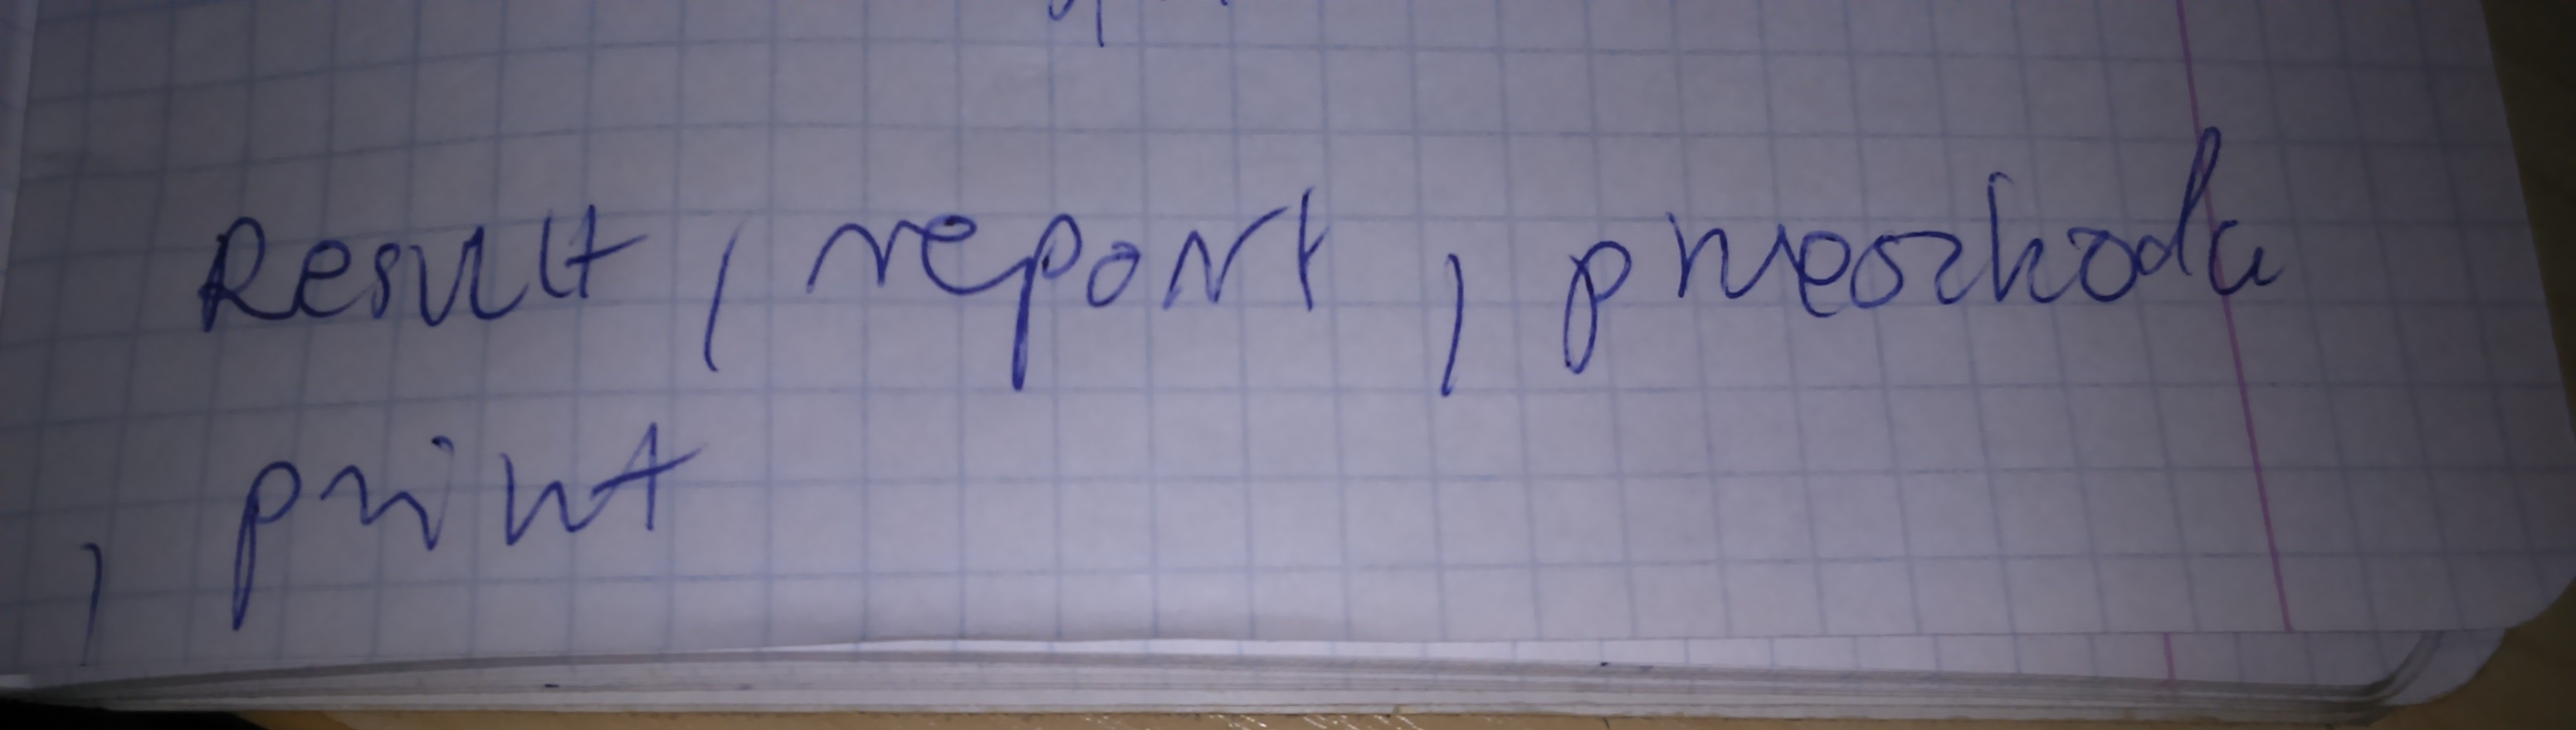 Result, report, przeszkoda
, print